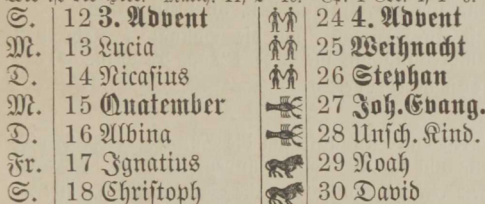 S. 12 3. Advent 24 4. Advent
M. 13 Lucia 25 Weihnacht
D. 14 Nicasius 26 Stephan
M. 15 Quatember 27 Joh. Evang.
D. 16 Albina 28 Unsch. Kind.
Fr. 17 Ignatius 29 Noah
S. 18 Christoph 30 David